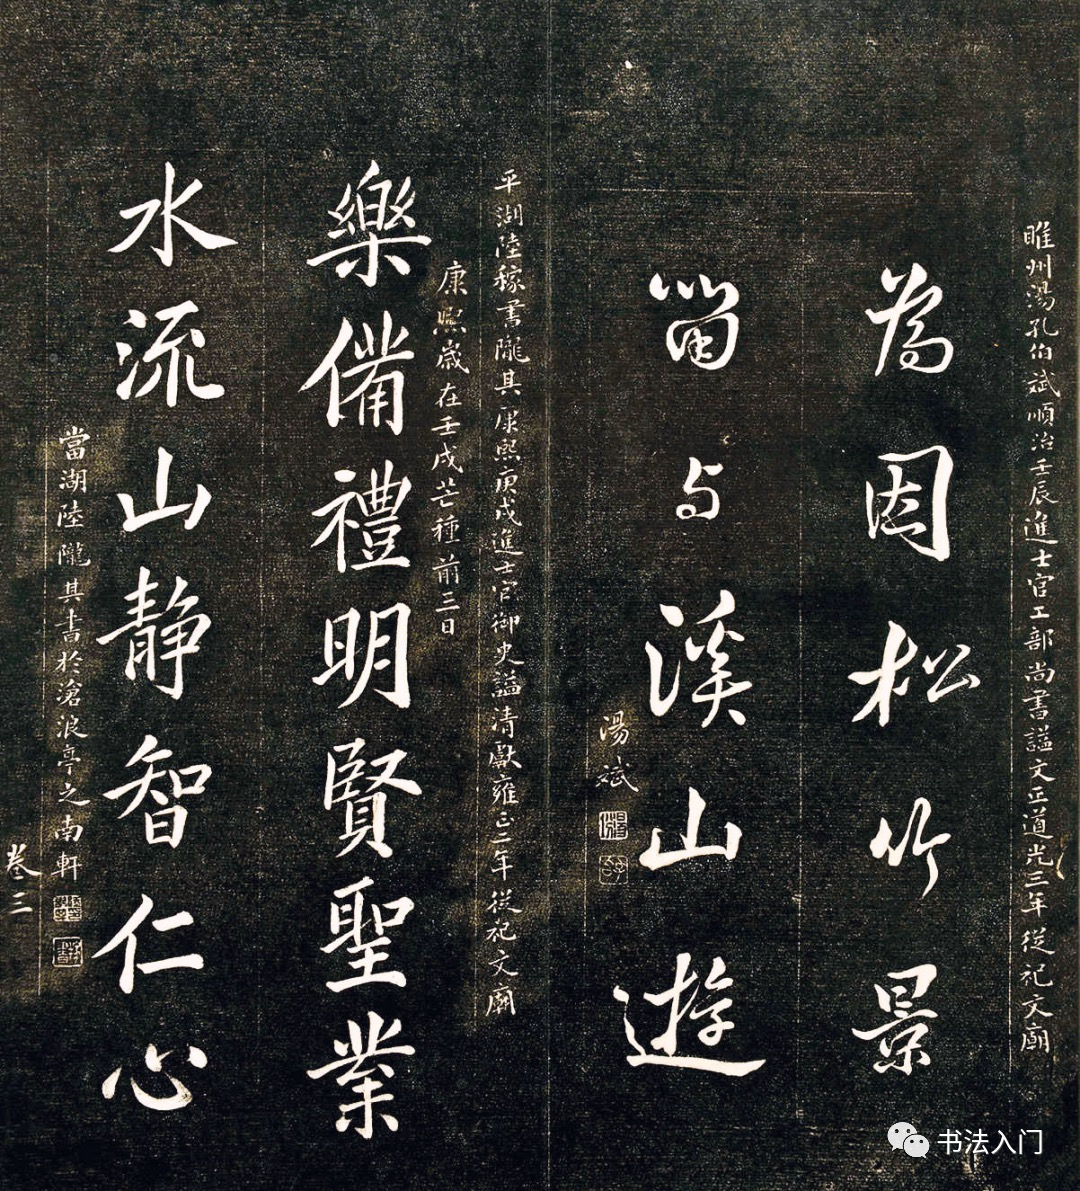 睢州湯孔伯斌順治壬辰進士官工部尚書謚文正道光三年從祀文廟
為因松竹景
留与溪山遊
湯斌
平湖陸稼書隴其康熙庚戌進士官御史謚清獻雍正二年從祀文廟
康熙歲在壬戌芒種前三日
樂備禮明賢聖業
水流山静智仁心
當湖陸隴其書於滄浪亭之南軒
卷三
书法入门